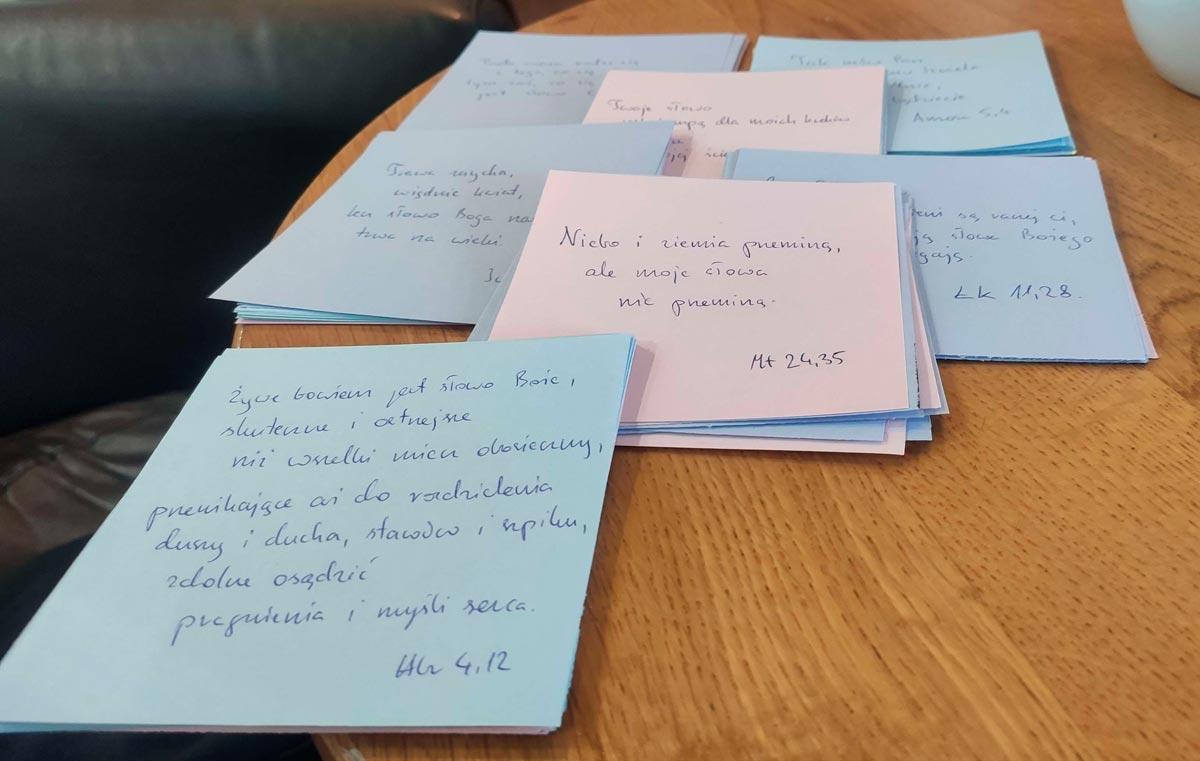 jest słowo
Tak mówi Pan
Amos 5,4
Twoje słowo
dla moich kroków
Trawa usycha,
więdnie kwiat,
lecz słowo Boga na
trwa na wieki.
są raczej ci,
słowa Bożego
Łk 11,28.
Niebo i ziemia przeminą,
ale moje słowa
nie przeminą.
Mt 24,35
Żywe bowiem jest słowo Boże,
skuteczne i ostrzejsze
niż wszelki miecz obosieczny,
przenikające aż do rozdzielenia
duszy i ducha, stawów i szpiku,
zdolne osądzić
pragnienia i myśli serca.
Hbr 4,12